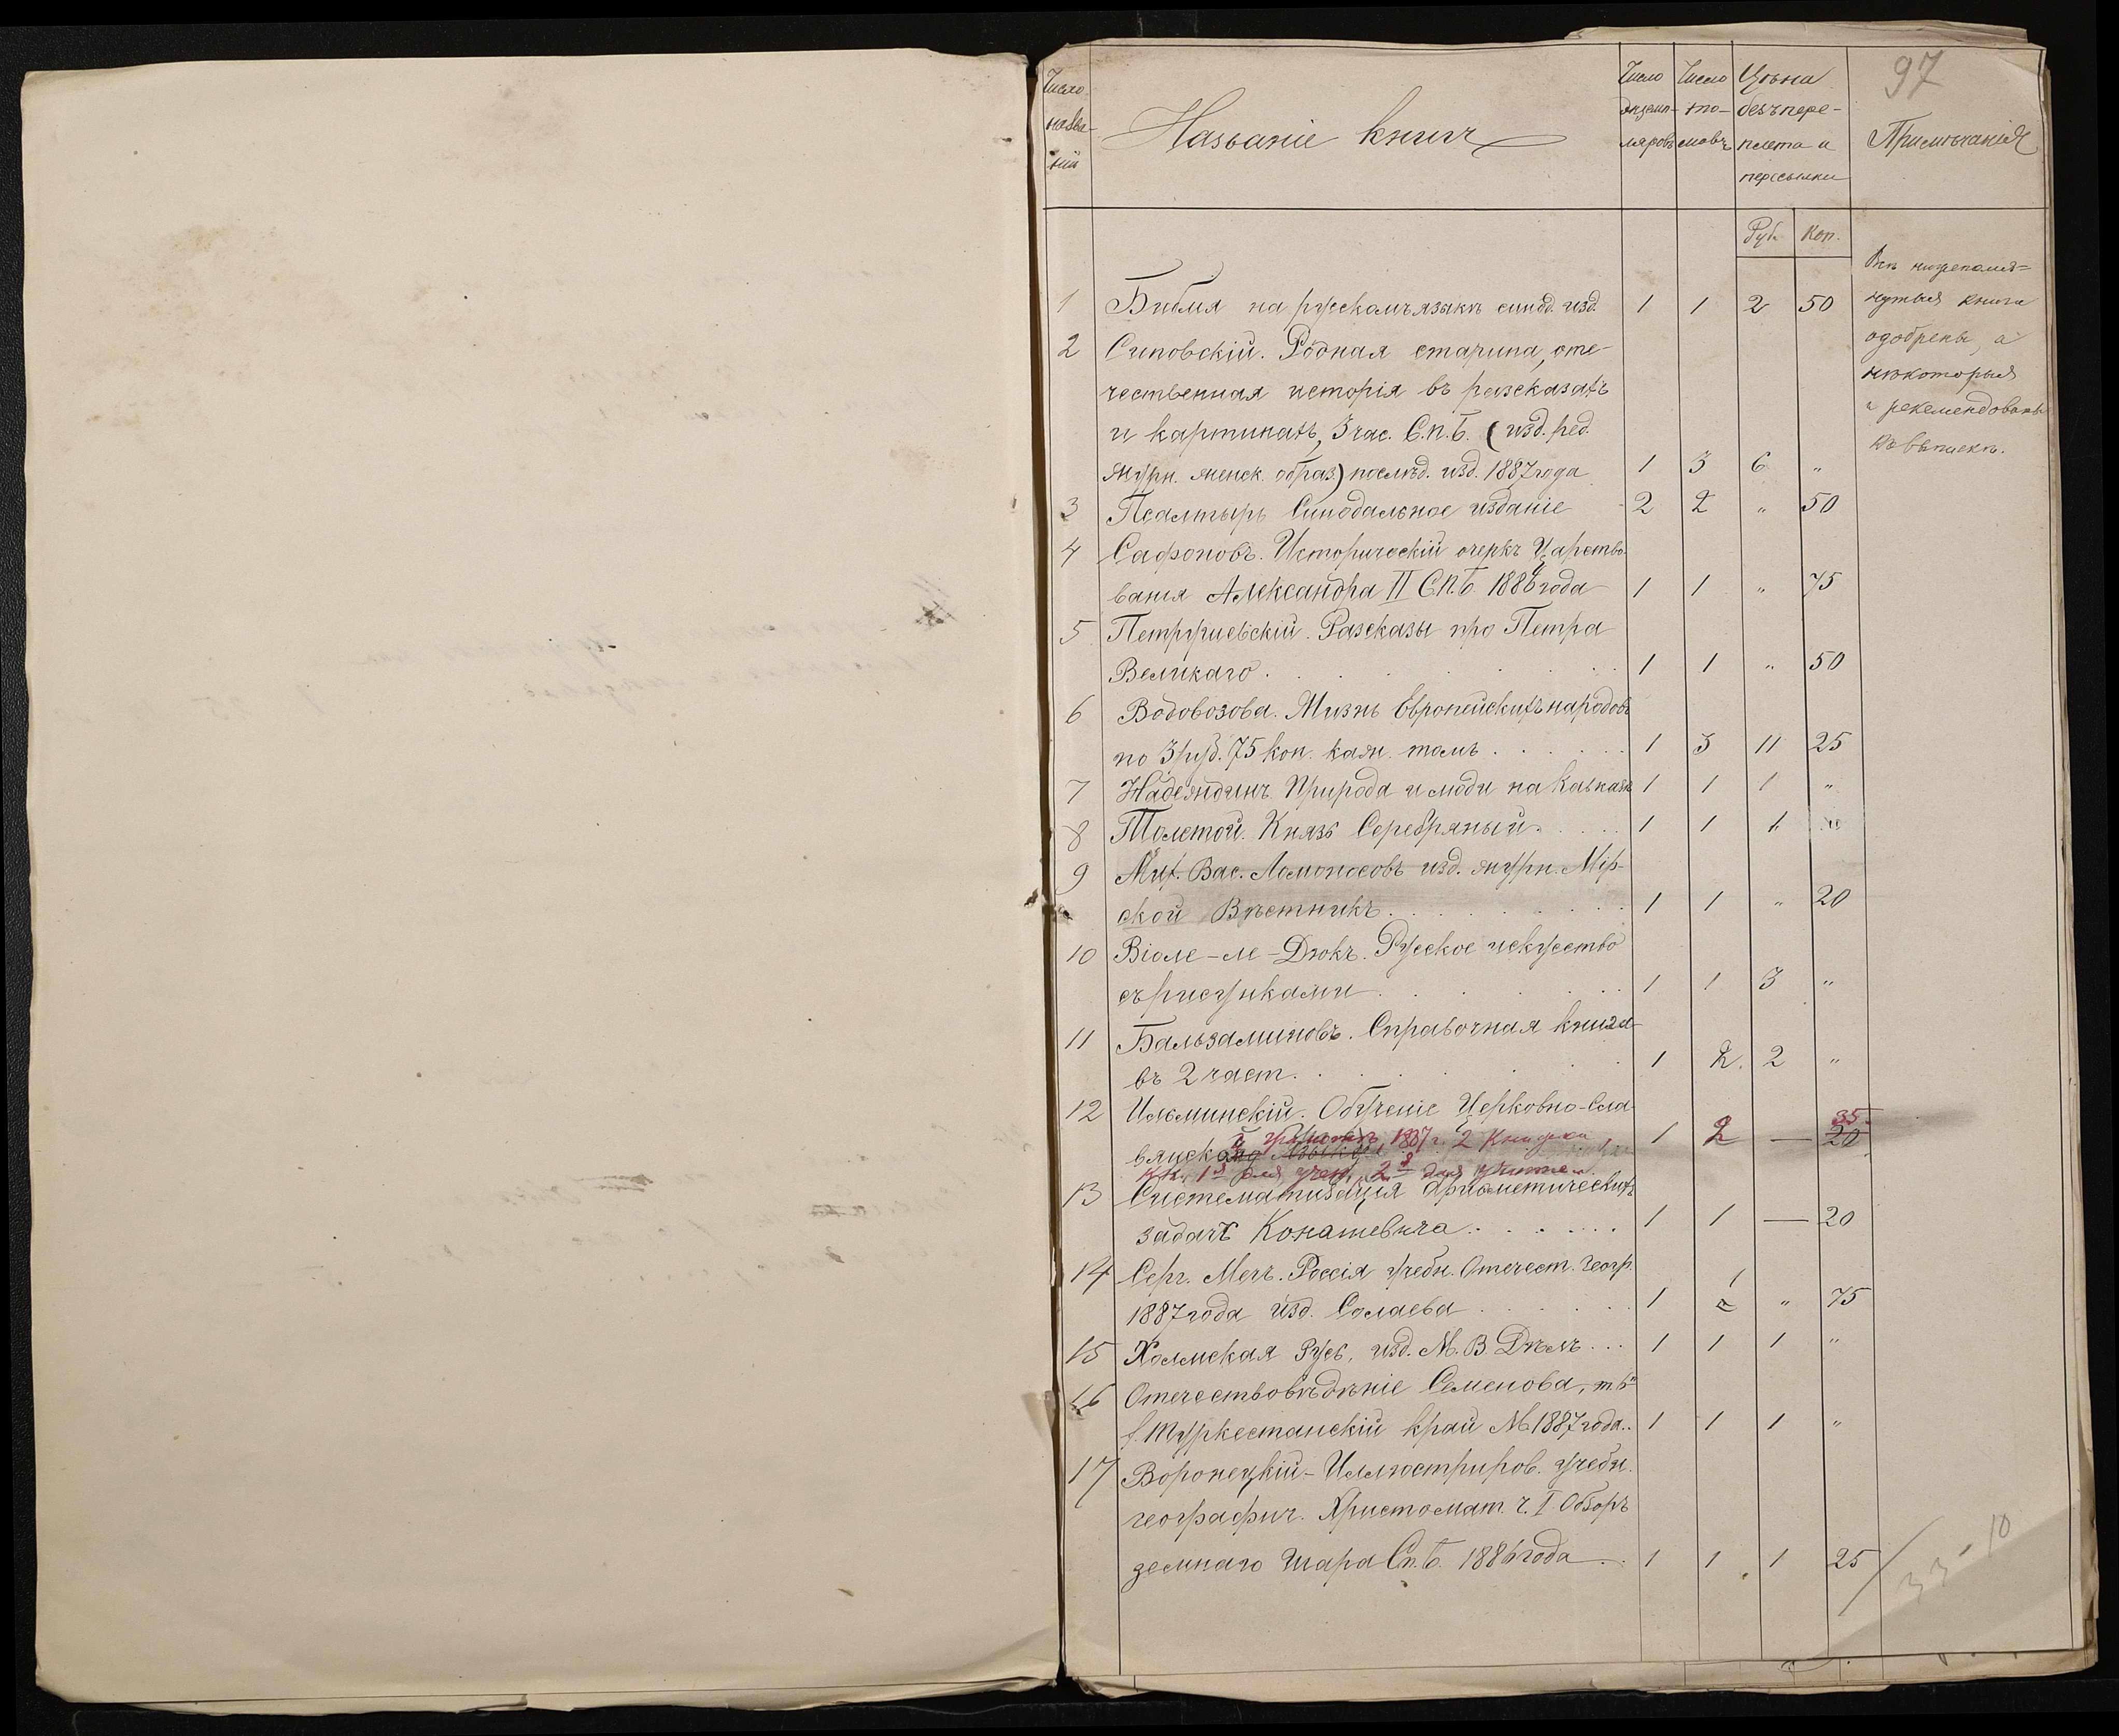 97
Число названій
Названіе книгъ
Число экземпляровъ
Число томовъ
Цѣна безъ переплета и пересылки
Примѣчанія
Руб. Коп.
Всѣ нижепомя-
нутыя книги
одобрены, а
нѣкоторыя
и рекомендованы
къ выпискѣ.
1 Библія на русскомъ языкѣ синод. изд. 1 1 2 50
2 Сиповскій. Родная старина, оте-
чественная исторія въ разсказахъ
и картинахъ, 3 час. С.п.Б. (изд. ред.
журн. женск. образ.) послѣд. изд. 1887 года 1 3 6 "
3 Псалтырь Синодальное изданіе 2 2 " 50
4 Сафоновъ. Историческій очеркъ Царство-
ванія Александра II С.П.Б. 1886 года 1 1 " 75
5 Петрушевскій. Разсказы про Петра
Великаго . 1 1 " 50
6 Водовозова. Жизнь Европейскихъ народовъ
по 3 руб. 75 коп. каж. томъ . 1 3 11 25
7 Надеждинъ. Природа и люди на Кавказѣ 1 1 1 "
8 Толстой. Князь Серебряный. 1 1 1 "
9 Мих. Вас. Ломоносовъ изд. журн. Мір-
ской Вѣстникъ . 1 1 " 20
10 Віоле-ле-Дюкъ. Русское искусство
съ рисунками . 1 1 3 "
11 Бальзаминовъ. Справочная книга
въ 2 част. 1 2. 2 "
12 Ильминскій. Обученіе Церковно-Сла-
вянской грамотѣ, 1887 г. 2 книжки, 1 2 — 35
20
кн. 1я для учен. 2я для учителя.
13 Систематизація ариѳметическихъ
задачъ Конашевича . 1 1 — 20
14 Серг. Мечъ. Россія учебн. Отечест. геогр.
1887 года изд. Салаева 1 1 " 75
15 Холмская Русь, изд. М. В. Дѣлъ ... 1 1 1 "
16 Отечествовѣдѣніе Семенова, т. 6й
Туркестанскій край М. 1887 года.. 1 1 1 "
17 Воронецкій - Иллюстриров. учебн.
географич. Христомат. ч. I Обзоръ
земнаго шара Сп.Б. 1886 года . 1 1 1 25
33-10